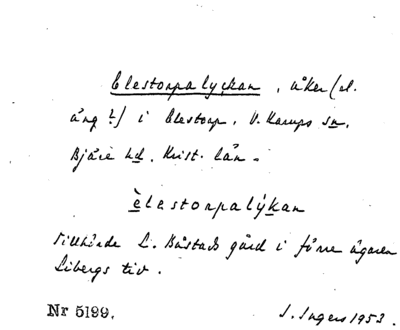 Elestorpalyckan, åker (el.
äng?) i Elestorp, V. Karups sn,
Bjäre hd, Krist. län.
èlestorpalýkan
Tillhörde L. Båstads gård i förre ägaren
Libergs tid.
Nr 5199.
I. Ingers 1953.